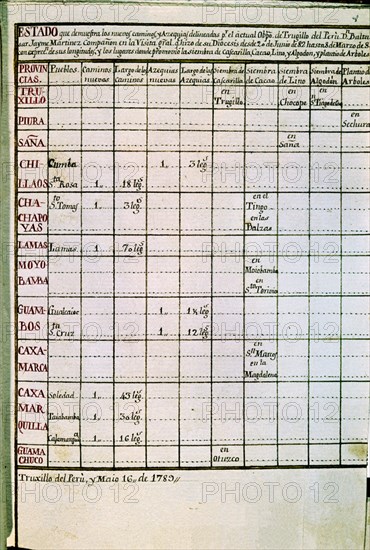 ESTADO que demuestra los nuevos caminos, y Azequias delineadas pr. el actual Obpo. de Trugillo del Perù, Dn. Balta
sar Jayme Martinez Compañon en la Visita gral. q. hizo de su Diocesis desde 20 de Junio de 82 hasta 8 de Marzo de 8
con expresn. de sus longitudes, y los lugares donde promovió la siembra de Cascarilla, Cacao, Lino, y Algodon, y plantio de Arboles
PROVIN CIAS. Pueblos. Caminos nuevos Largo de los caminos Azequias nuevas Largo de las Azequias Siembra de Cascarilla Siembra de Cacao. Siembra de Lino Siembra de Algodon. Plantio de Arboles
TRU- XILLO en Trugillo en Chocope en
PIURA en Sechura
SAÑA en Saña
CHI- LLAOS Cumba 1,, 3 legs.
Sta. Rosa 1,, 18 legs.
CHA- CHAPO YAS Sto. Tomas 1,, 3 legs. en el Tingo en las Balzas
LAMAS Lamas 1,, 70 legs.
MOYO- BAMBA en Moiobamba en
GUAM- BOS Gualcaise 1,, 1½ legs.
Sta. Cruz 1,, 12 legs.
CAXA- MARCA en Sn. Marcos en la Magdalena
CAXA MAR QUILLA Soledad 1,, 43 legs.
Taiabamba 1,, 30 legs.
Cajamarquilla 1,, 16 legs.
GUAMA CHUCO en Otuzco
Truxillo del Perù, y Maio 16,, de 1789,,
PHOTO 12